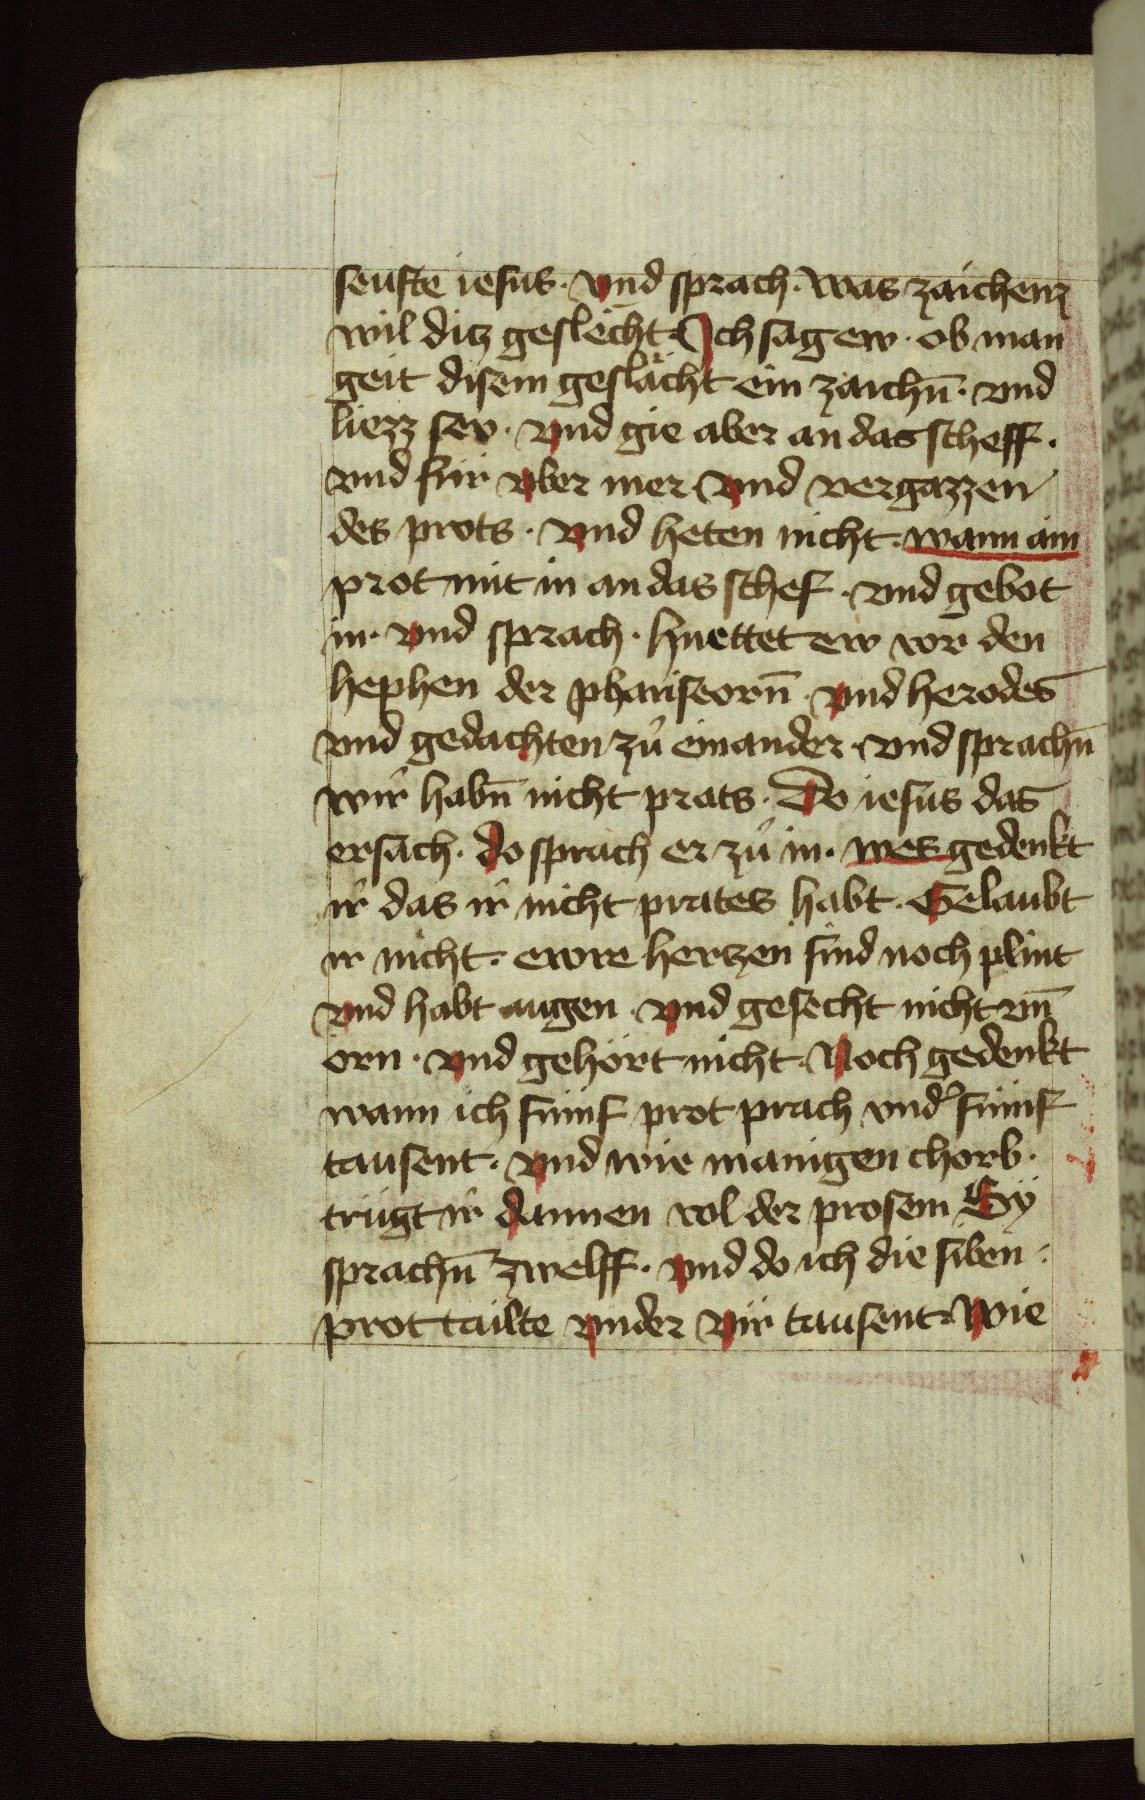 seufte iesus · vnd sprach · was zaichenz
wil ditz geslëcht Ich sag ew · ob man
geit disem geslächt ein zaichn̄ · vnd
liezz sey · vnd gie aber an das scheff ·
vnd für vber mer · vnd vergazzen
des prots · vnd heten nicht · wann ain
prot mit in an das schef · vnd gebot
in · vnd sprach · huettet ew vor den
hephen der phariseorn̄ · vnd herodes
vnd gedachten zů einander · vnd sprachn̄
wir habn̄ nicht prats · Do iesus das
ersach · do sprach er zů in · wes gedenkt
ir das ir nicht prates habt · Gelaubt
ir nicht · ewre hertzen sind noch plint
vnd habt augen · vnd gesecht nicht vn̄
orn · vnd gehört nicht · Noch gedenkt
wann ich fümf prot prach vnd' fümf
tausent · vnd wie manigen chorb ·
trügt ir dannen vol der prosem Sÿ
sprachn̄ zwelff · vnd do ich die siben
prot tailte vnder vir tausent · Wie